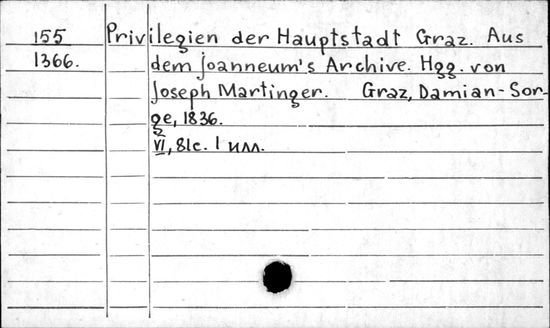 155 Privilegien der Hauptstadt Graz. Aus
1366. dem Joanneum's Archive. Hgg. von
Joseph Martinger. Graz, Damian-Sor-
ge, 1836.
VI, 81c. 1 илл.